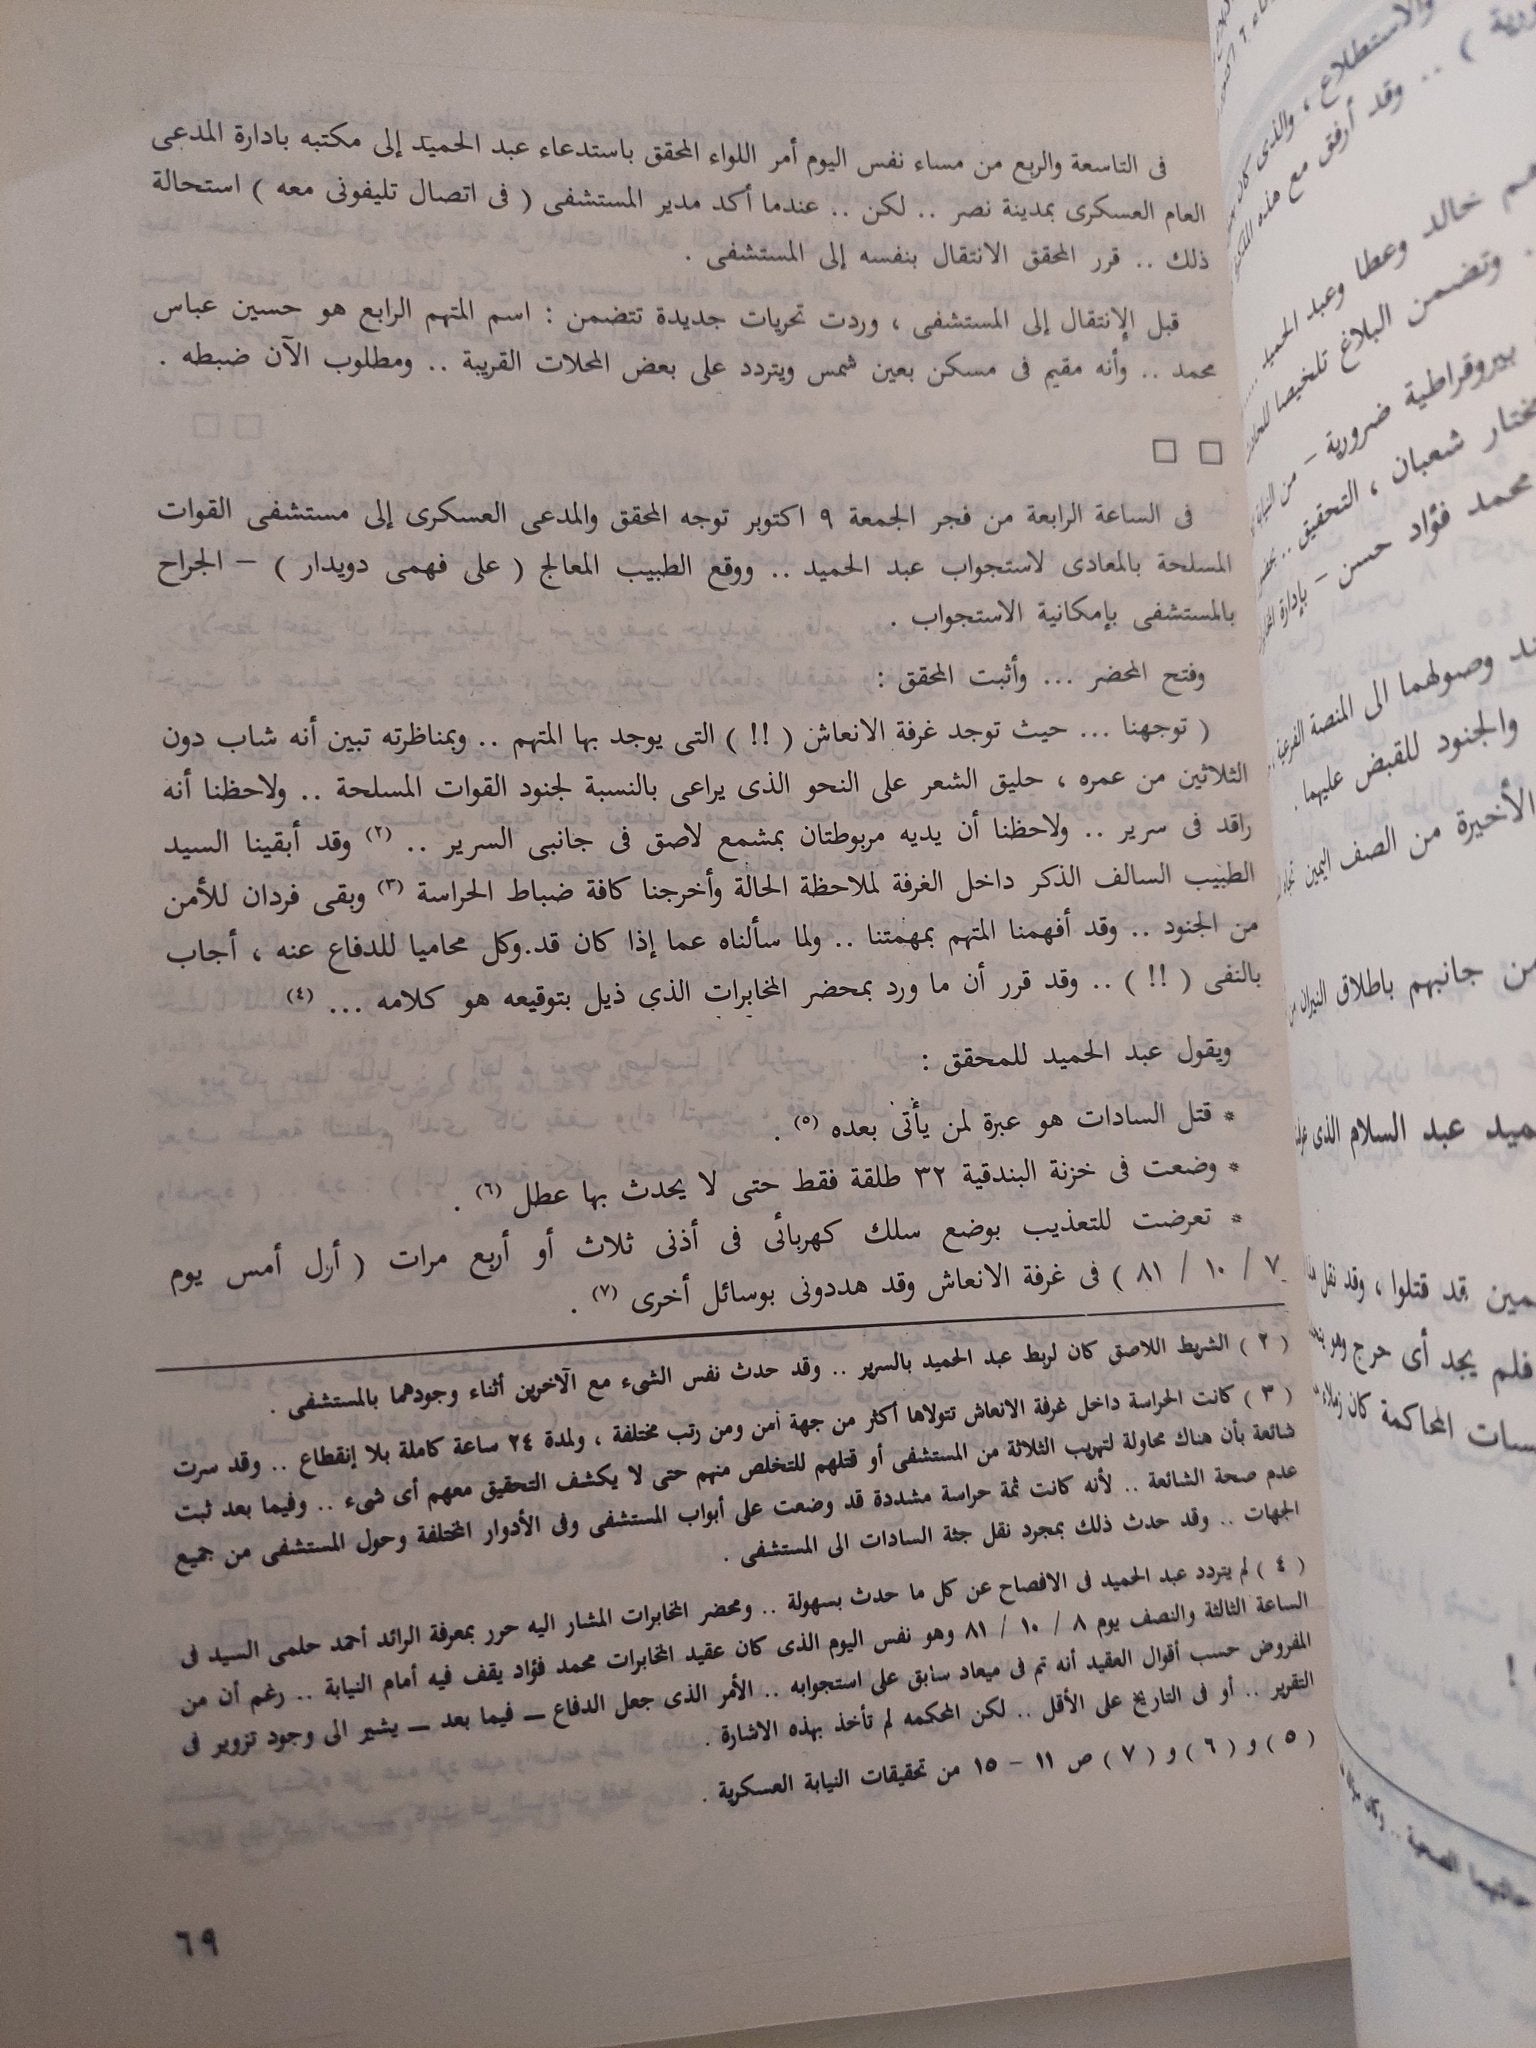 فى التاسعة والربع من مساء نفس اليوم أمر اللواء المحقق باستدعاء عبد الحميد إلى مكتبه بادارة المدعى
العام العسكرى بمدينة نصر .. لكن .. عندما أكد مدير المستشفى ( فى اتصال تليفونى معه ) استحالة
ذلك .. قرر المحقق الانتقال بنفسه إلى المستشفى .
قبل الإنتقال إلى المستشفى ، وردت تحريات جديدة تتضمن : اسم المتهم الرابع هو حسين عباس
محمد .. وأنه مقيم فى مسكن بعين شمس ويتردد على بعض المحلات القريبة .. ومطلوب الآن ضبطه .
□ □
فى الساعة الرابعة من فجر الجمعة ٩ اكتوبر توجه المحقق والمدعى العسكرى إلى مستشفى القوات
المسلحة بالمعادى لاستجواب عبد الحميد .. ووقع الطبيب المعالج ( على فهمى دويدار ) – الجراح
بالمستشفى بإمكانية الاستجواب .
وفتح المحضر ... وأثبت المحقق :
( توجهنا ... حيث توجد غرفة الانعاش ( !! ) التى يوجد بها المتهم .. وبمناظرته تبين أنه شاب دون
الثلاثين من عمره ، حليق الشعر على النحو الذى يراعى بالنسبة لجنود القوات المسلحة .. ولاحظنا أنه
راقد فى سرير .. ولاحظنا أن يديه مربوطتان بمشمع لاصق فى جانبى السرير .. (٢) وقد أبقينا السيد
الطبيب السالف الذكر داخل الغرفة لملاحظة الحالة وأخرجنا كافة ضباط الحراسة (٣) وبقى فردان للأمن
من الجنود .. وقد أفهمنا المتهم بمهمتنا .. ولما سألناه عما إذا كان قد.وكل محاميا للدفاع عنه ، أجاب
بالنفى ( !! ) .. وقد قرر أن ما ورد بمحضر المخابرات الذى ذيل بتوقيعه هو كلامه ... (٤)
ويقول عبد الحميد للمحقق :
* قتل السادات هو عبرة لمن يأتى بعده (٥) .
* وضعت فى خزنة البندقية ٣٢ طلقة فقط حتى لا يحدث بها عطل (٦) .
* تعرضت للتعذيب بوضع سلك كهربائى فى أذنى ثلاث أو أربع مرات ( أول أمس يوم
٧ / ١٠ / ٨١ ) فى غرفة الانعاش وقد هددونى بوسائل أخرى (٧) .
( ٢ ) الشريط اللاصق كان لربط عبد الحميد بالسرير .. وقد حدث نفس الشىء مع الآخرين أثناء وجودهما بالمستشفى .
( ٣ ) كانت الحراسة داخل غرفة الانعاش تتولاها أكثر من جهة أمن ومن رتب مختلفة ، ولمدة ٢٤ ساعة كاملة بلا إنقطاع .. وقد سرت
شائعة بأن هناك محاولة لتهريب الثلاثة من المستشفى أو قتلهم للتخلص منهم حتى لا يكشف التحقيق معهم أى شىء .. وفيما بعد ثبت
عدم صحة الشائعة .. لأنه كانت ثمة حراسة مشددة قد وضعت على أبواب المستشفى وفى الأدوار المختلفة وحول المستشفى من جميع
الجهات .. وقد حدث ذلك بمجرد نقل جثة السادات الى المستشفى .
( ٤ ) لم يتردد عبد الحميد فى الافصاح عن كل ما حدث بسهولة .. ومحضر المخابرات المشار اليه حرر بمعرفة الرائد أحمد حلمى السيد فى
الساعة الثالثة والنصف يوم ٨ / ١٠ / ٨١ وهو نفس اليوم الذى كان عقيد المخابرات محمد فؤاد يقف فيه أمام النيابة .. رغم أن من
المفروض حسب أقوال العقيد أنه تم فى ميعاد سابق على استجوابه .. الأمر الذى جعل الدفاع ــ فيما بعد ــ يشير الى وجود تزوير فى
التقرير .. أو فى التاريخ على الأقل .. لكن المحكمه لم تأخذ بهذه الاشارة .
( ٥ ) و ( ٦ ) و ( ٧ ) ص ١١ – ١٥ من تحقيقات النيابة العسكرية .
٦٩
والاستطلاع ، والذى كان
.. وقد أرفق مع هذه المذكرة
خالد وعطا وعبد الحميد ....
وتضمن البلاغ تلخيصا
بيروقراطية ضرورية – من النيابة
مختار شعبان ، التحقيق ..
محمد فؤاد حسن – بإدارة
وصولهما الى المنصة الفرعية ..
والجنود للقبض عليهما .
الأخيرة من الصف اليمين تجاه
من جانبهم باطلاق النيران من
عبد السلام الذى
قد قتلوا ، وقد نقل
فلم يجد أى حرج وهو
المحاكمة كان زملاء